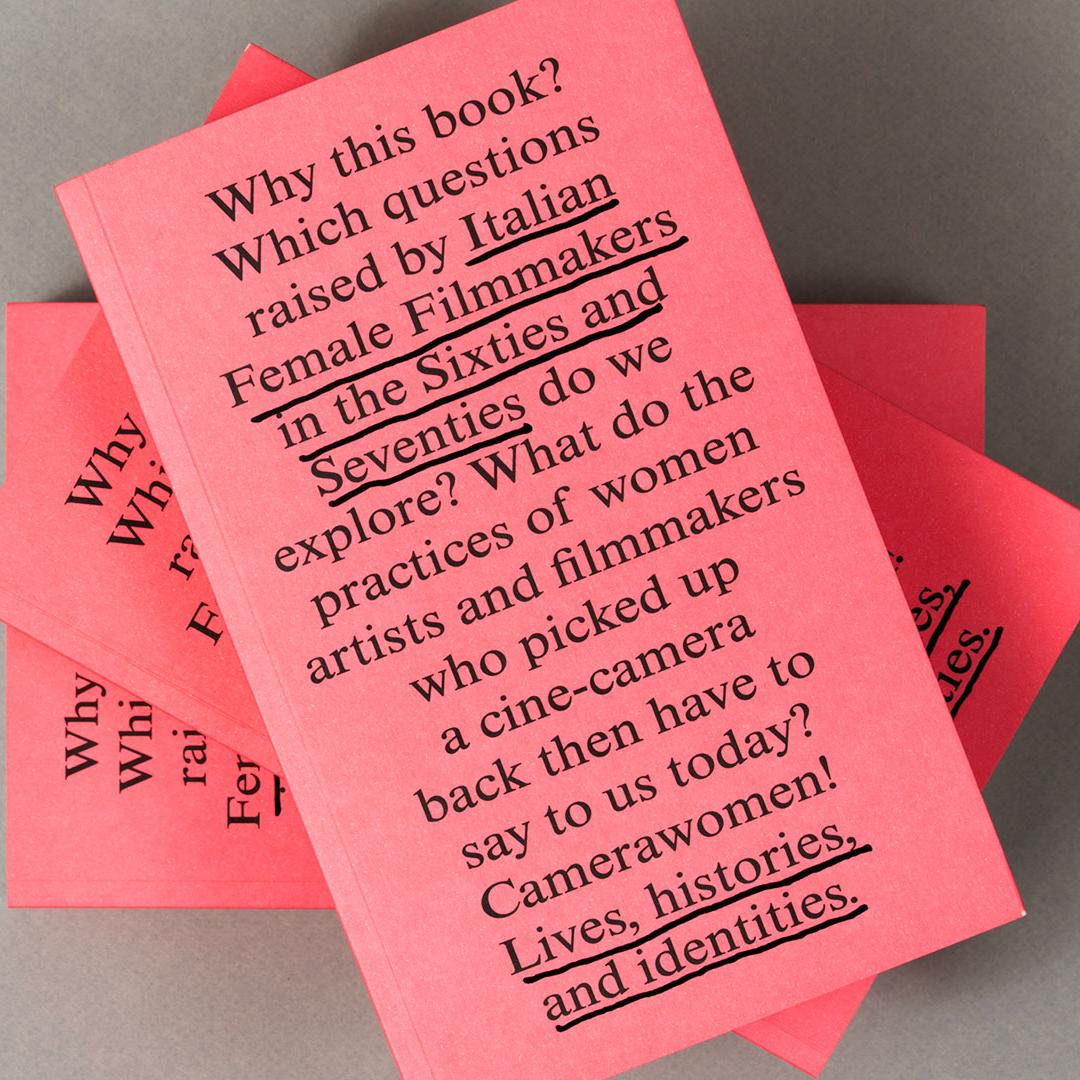 Why this book?
Which questions
raised by Italian
Female Filmmakers
in the Sixties and
Seventies do we
explore? What do the
practices of women
artists and filmmakers
who picked up
a cine-camera
back then have to
say to us today?
Camerawomen!
Lives, histories,
and identities.
Why
Whi
ra
F
Why
Whi
rai
Fer
es,
ties.